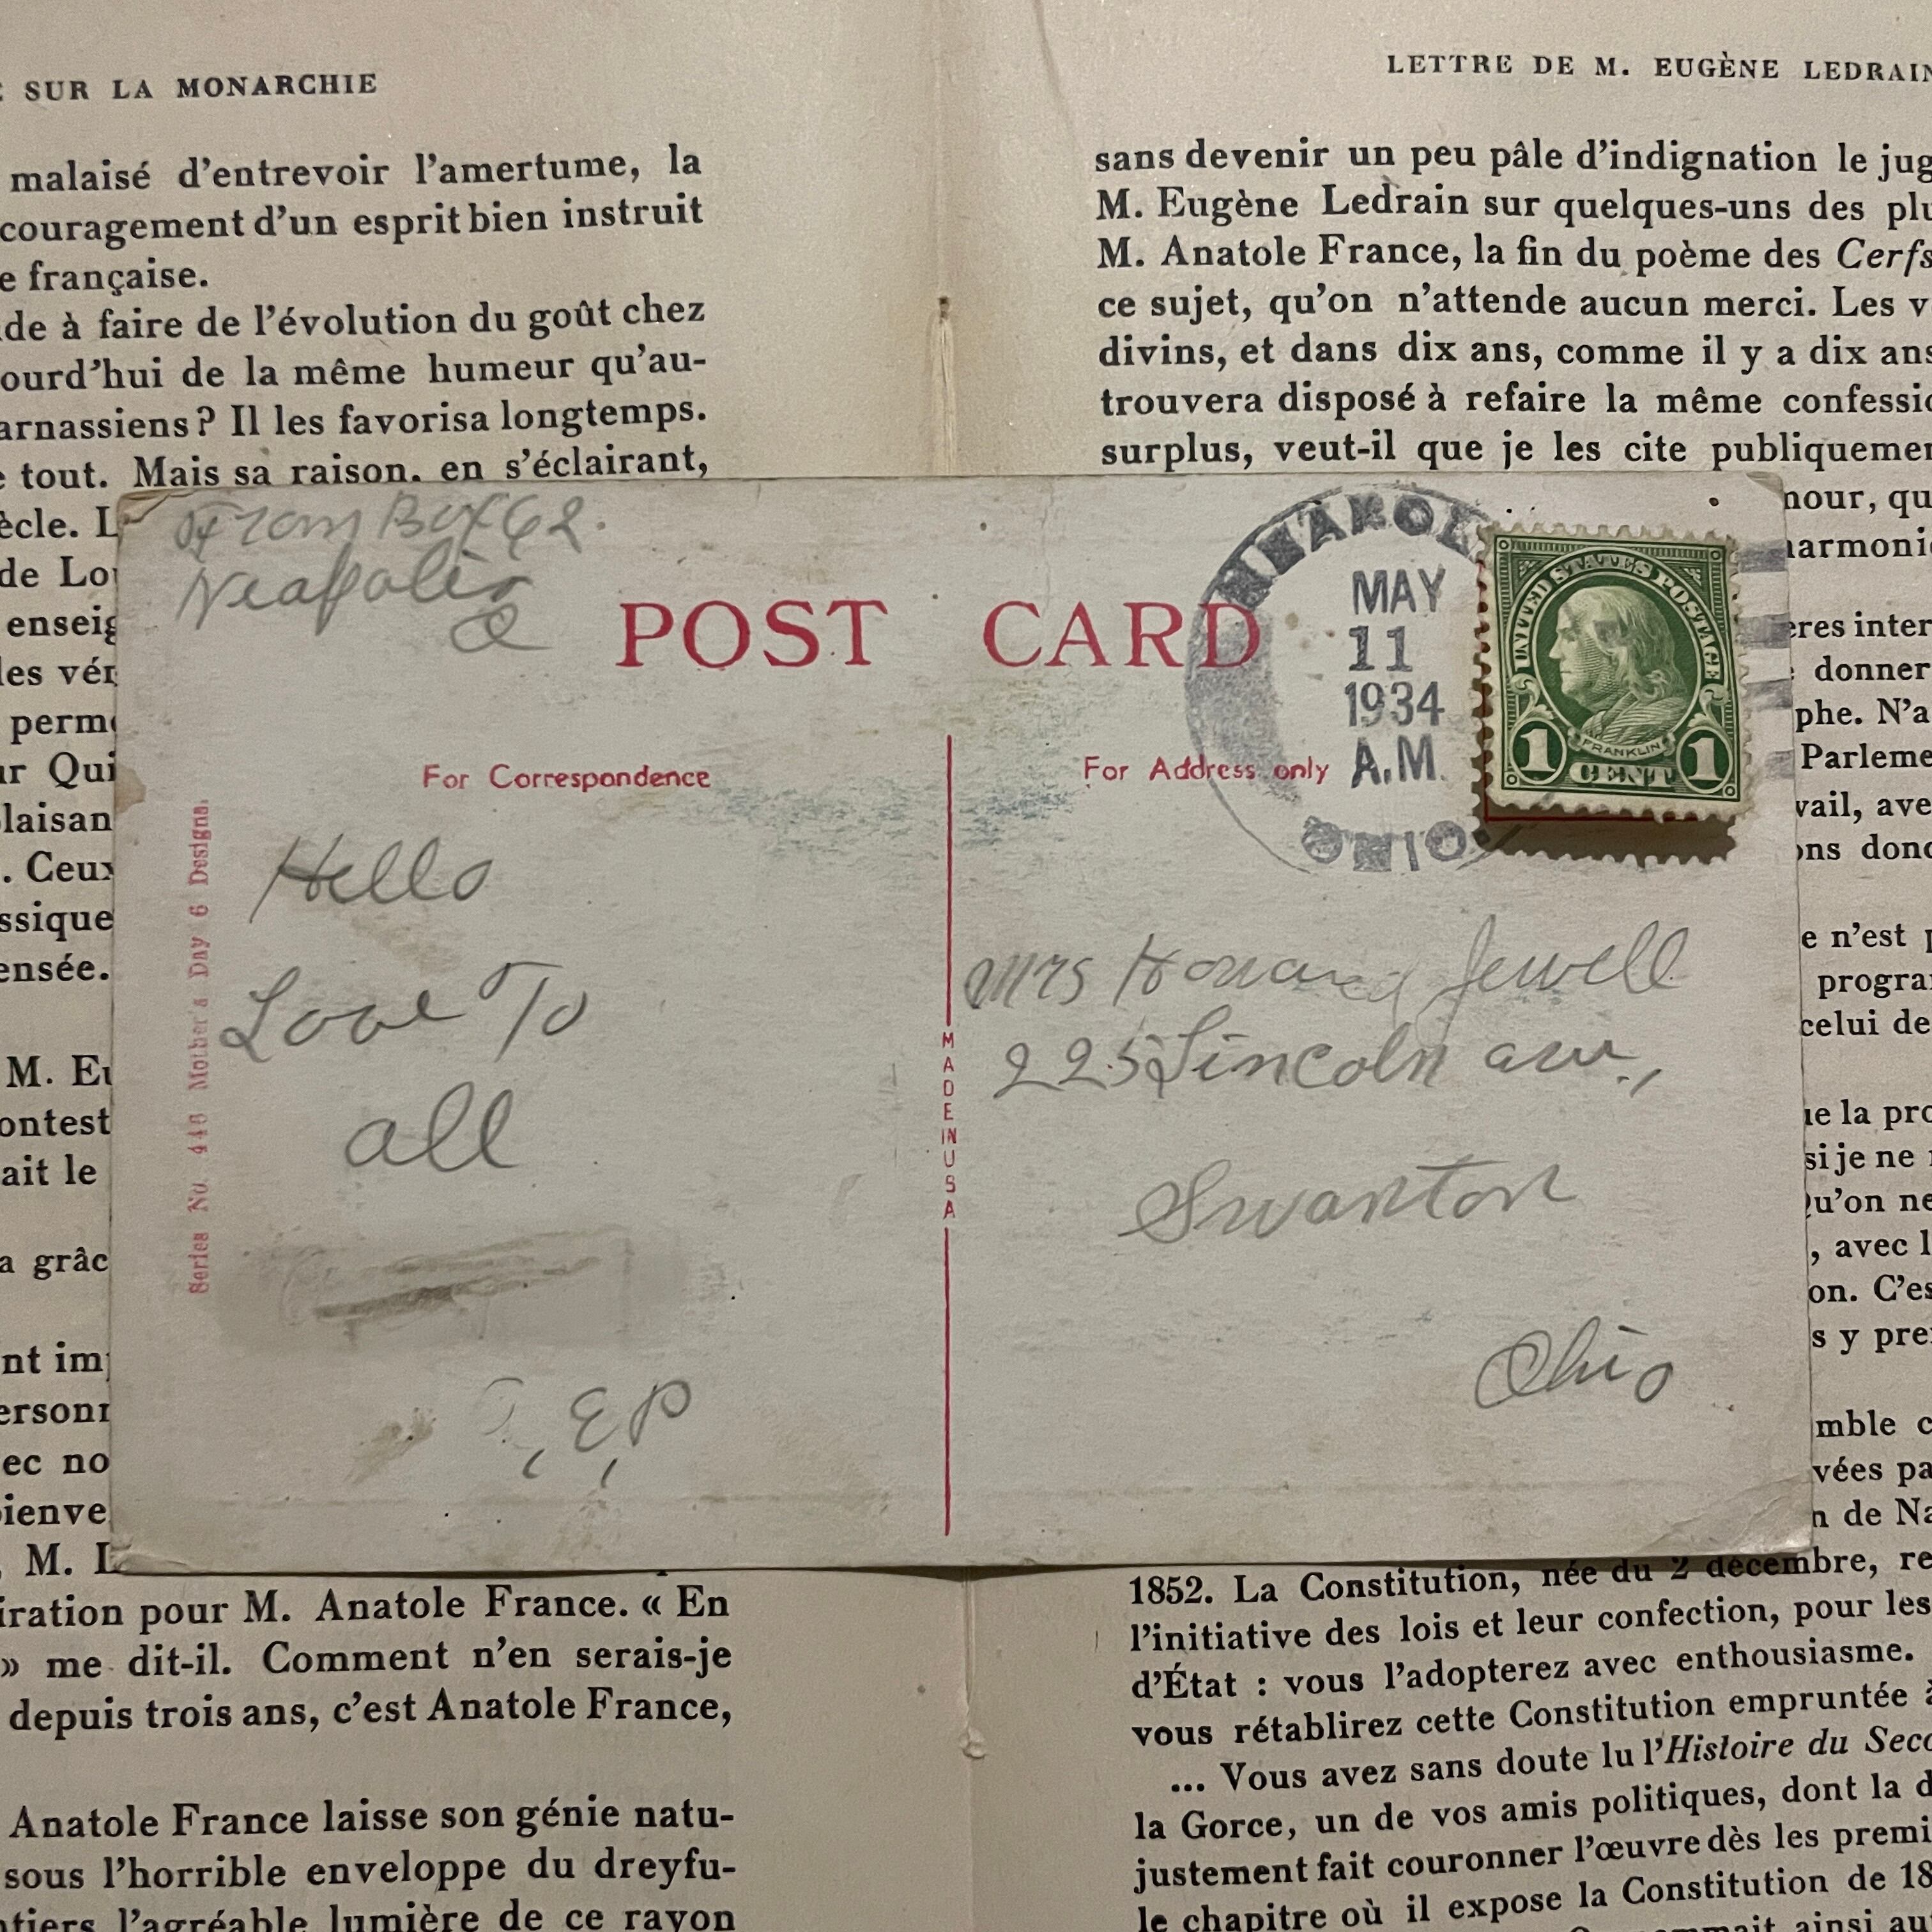 SUR LA MONARCHIE
malaisé d'entrevoir l'amertume, la
couragement d'un esprit bien instruit
e française.
de à faire de l'évolution du goût chez
ourd'hui de la même humeur qu'au-
arnassiens ? Il les favorisa longtemps.
tout. Mais sa raison, en s'éclairant,
ècle. L
de Lou
enseig
les vér
perme
ur Qui
plaisan
. Ceux
ssique
ensée.
M. Eu
contest
ait le
a grâc
nt imp
ersonn
ec no
bienve
M. L
iration pour M. Anatole France. « En
» me dit-il. Comment n'en serais-je
depuis trois ans, c'est Anatole France,
Anatole France laisse son génie natu-
sous l'horrible enveloppe du dreyfu-
ntiers l'agréable lumière de ce rayon
LETTRE DE M. EUGÈNE LEDRAIN
sans devenir un peu pâle d'indignation le jug
M. Eugène Ledrain sur quelques-uns des plu
M. Anatole France, la fin du poème des Cerfs
ce sujet, qu'on n'attende aucun merci. Les v
divins, et dans dix ans, comme il y a dix ans
trouvera disposé à refaire la même confessio
surplus, veut-il que je les cite publiquemen
mour, qu
harmoni
ères inter
donner
phe. N'a
Parleme
vail, ave
ons donc
e n'est p
program
celui de
ue la pro
si je ne
Qu'on ne
, avec l
on. C'es
s y pre
mble c
vées pa
n de Na
1852. La Constitution, née du 2 décembre, re
l'initiative des lois et leur confection, pour les
d'État : vous l'adopterez avec enthousiasme.
vous rétablirez cette Constitution empruntée à
... Vous avez sans doute lu l'Histoire du Seco
la Gorce, un de vos amis politiques, dont la d
justement fait couronner l'œuvre dès les premi
le chapitre où il expose la Constitution de 18
ainsi au
From Box 62
Neapolis
O
POST CARD
For Correspondence
For Address only
Series No. 446 Mother's Day 6 Designs.
MADE IN USA
Hello
Love To
all
, E, P
MAY
11
1934
A.M.
OHIO
UNITED STATES POSTAGE
FRANKLIN
1 CENT 1
Mrs Howard Jewell
225 Lincoln ave.,
Swanton
Ohio